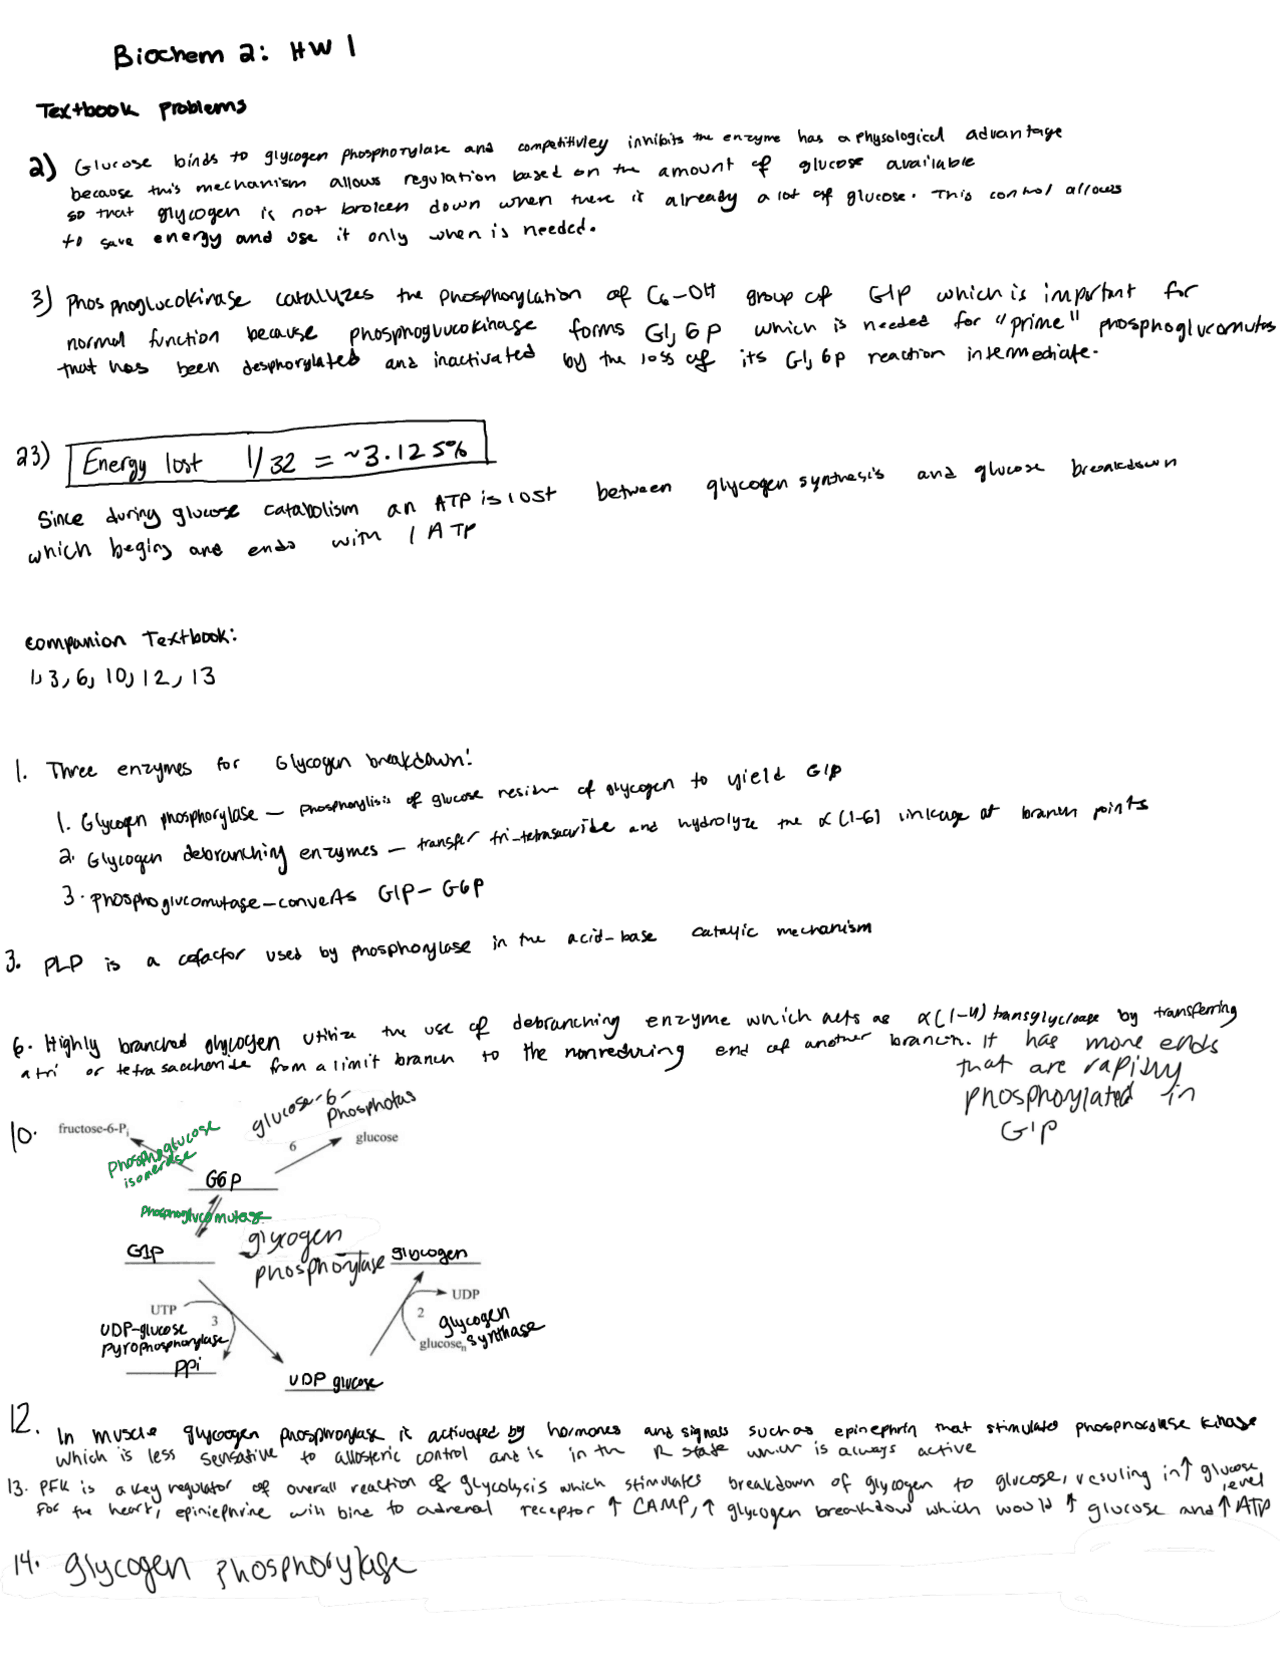 Biochem 2: HW 1
Textbook problems
2) Glucose binds to glycogen phosphorylase and competitivley inhibits the enzyme has a physological advantage
because this mechanism allows regulation based on the amount of glucose available
so that glycogen is not broken down when there is already a lot of glucose. This control allows
to save energy and use it only when is needed.
3) Phosphoglucokinase catalyzes the phosphorylation of C6-OH group of G1P which is important for
normal function because phosphoglucokinase forms G1,6P which is needed for "prime" phosphoglucomutas
that has been desphorylated and inactivated by the loss of its G1,6P reaction intermediate.
23) Energy lost 1/32 = ~3.125%
Since during glucose catabolism an ATP is lost between glycogen synthesis and glucose breakdown
which begins and ends with 1 ATP
companion Textbook:
1, 3, 6, 10, 12, 13
1. Three enzymes for Glycogen breakdown:
1. Glycogen phosphorylase – Phosphorylisis of glucose residue of glycogen to yield G1P
2. Glycogen debranching enzymes – transfer tri-tetrasacride and hydrolyze the α(1-6) linkage at branch points
3. phosphoglucomutase – converts G1P – G6P
3. PLP is a cofactor used by phosphorylase in the acid-base catalyic mechanism
6. Highly branched glycogen utilize the use of debranching enzyme which acts as α(1-4) transglycloase by transferring
a tri or tetrasaccharide from a limit branch to the nonreducing end of another branch. It has more ends
that are rapidly
phosphorylated in
G1P
10.
fructose-6-Pi
phosphoglucose
isomerase
glucose-6-
Phosphotas
6
glucose
G6P
Phosphoglucomutase
G1P
glycogen
phosphorylase
glycogen
UTP
3
UDP-glucose
pyrophosphorylase
PPi
UDP
2
glycogen
synthase
glucosen
UDP glucose
12. In muscle glycogen phosphorylase is activated by hormones and signals such as epinephrin that stimulates phosphorylase kinase
which is less sensative to allosteric control and is in the R state which is always active
13. PFK is a key regulator of overall reaction of glycolysis which stimulates breakdown of glycogen to glucose, resuling in ↑ glucose
level
For the heart, epiniephrine will bind to adrenal receptor ↑ CAMP, ↑ glycogen breakdow which would ↑ glucose and ↑ ATP
14. glycogen phosphorylase